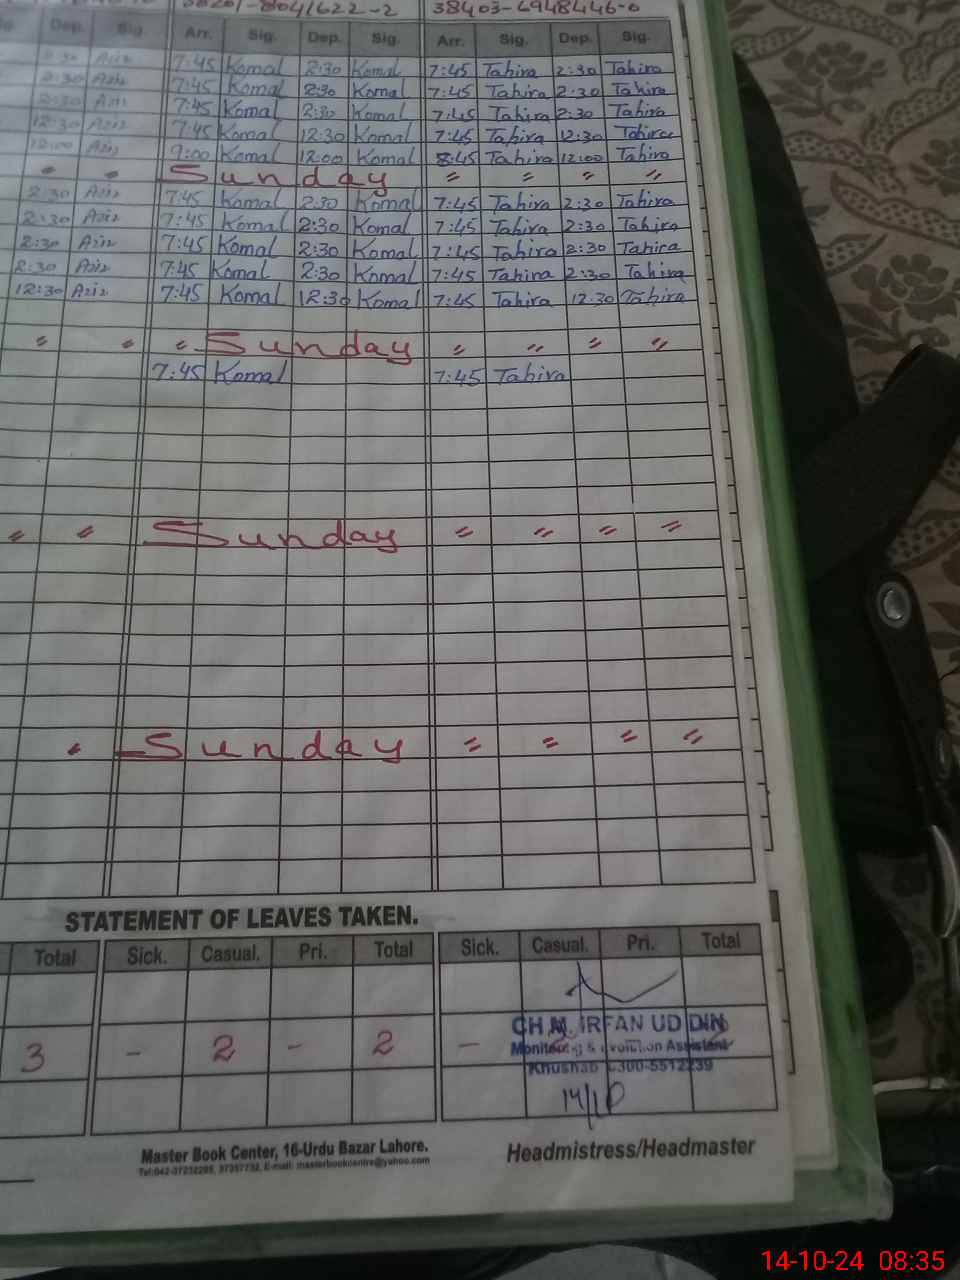 -8041622-2 38403-6948446-0
Dep. Sig. Arr. Sig. Dep. Sig. Arr. Sig. Dep. Sig.
2:30 Aziz 7:45 Komal 2:30 Komal 7:45 Tahira 2:30 Tahira
2:30 Aziz 7:45 Komal 2:30 Komal 7:45 Tahira 2:30 Tahira
2:30 Aziz 7:45 Komal 2:30 Komal 7:45 Tahira 2:30 Tahira
12:30 Aziz 7:45 Komal 12:30 Komal 7:45 Tahira 12:30 Tahira
12:00 Aziz 9:00 Komal 12:00 Komal 8:45 Tahira 12:00 Tahira
" " Sunday " " " "
2:30 Aziz 7:45 Komal 2:30 Komal 7:45 Tahira 2:30 Tahira
2:30 Aziz 7:45 Komal 2:30 Komal 7:45 Tahira 2:30 Tahira
2:30 Aziz 7:45 Komal 2:30 Komal 7:45 Tahira 2:30 Tahira
2:30 Aziz 7:45 Komal 2:30 Komal 7:45 Tahira 2:30 Tahira
12:30 Aziz 7:45 Komal 12:30 Komal 7:45 Tahira 12:30 Tahira
" " " Sunday " " " "
7:45 Komal 7:45 Tahira
" " Sunday " " " "
" Sunday " " " "
STATEMENT OF LEAVES TAKEN.
Total Sick. Casual. Pri. Total Sick. Casual. Pri. Total
3 - 2 - 2 -
CH.M. IRFAN UD DIN
Monitoring & Evolution Assistant
Khushab 0300-5512239
14/10
Master Book Center, 16-Urdu Bazar Lahore.
Headmistress/Headmaster
E-mail: masterbookcentre@yahoo.com
14-10-24 08:35